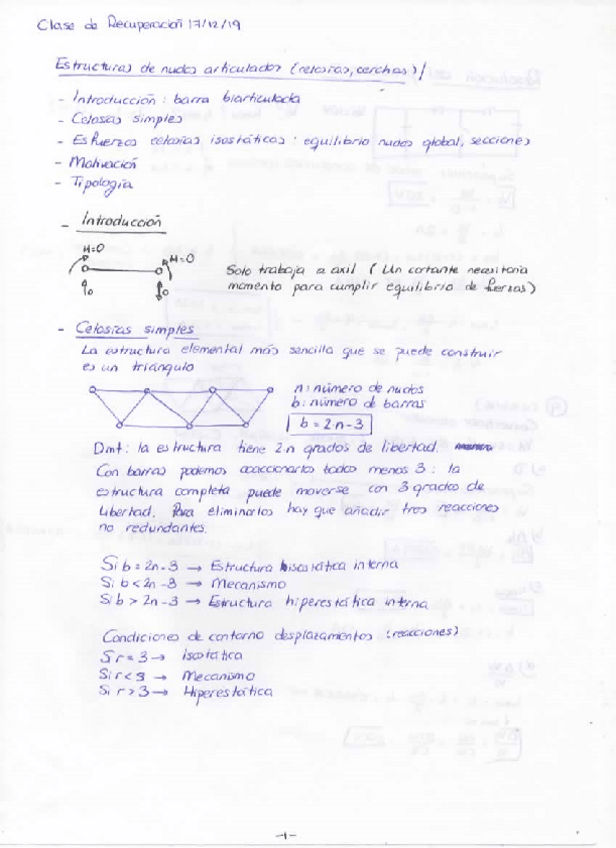 Clase de Recuperación 17/12/19
Estructuras de nudos articulados (celosías, cerchas)/
- Introducción: barra biarticulada
- Celosías simples
- Esfuerzos celosías isostáticas: equilibrio nudos global, secciones
- Motivación
- Tipología
- Introducción
M=0
M=0
0
0
Solo trabaja a axil (Un cortante necesitaria
momento para cumplir equilibrio de fuerzas)
- Celosías simples
La estructura elemental más sencilla que se puede construir
es un triángulo
n: número de nudos
b: número de barras
b = 2·n-3
Dmt: la estructura tiene 2·n grados de libertad.
Con barras podemos coaccionarlos todos menos 3: la
estructura completa puede moverse con 3 grados de
libertad. Para eliminarlos hay que añadir tres reacciones
no redundantes.
Si b = 2n-3 → Estructura isostática interna
Si b < 2n-3 → Mecanismo
Si b > 2n-3 → Estructura hiperestática interna
Condiciones de contorno desplazamientos (reacciones)
Si r = 3 → Isostática
Si r < 3 → Mecanismo
Si r > 3 → Hiperestática
-1-